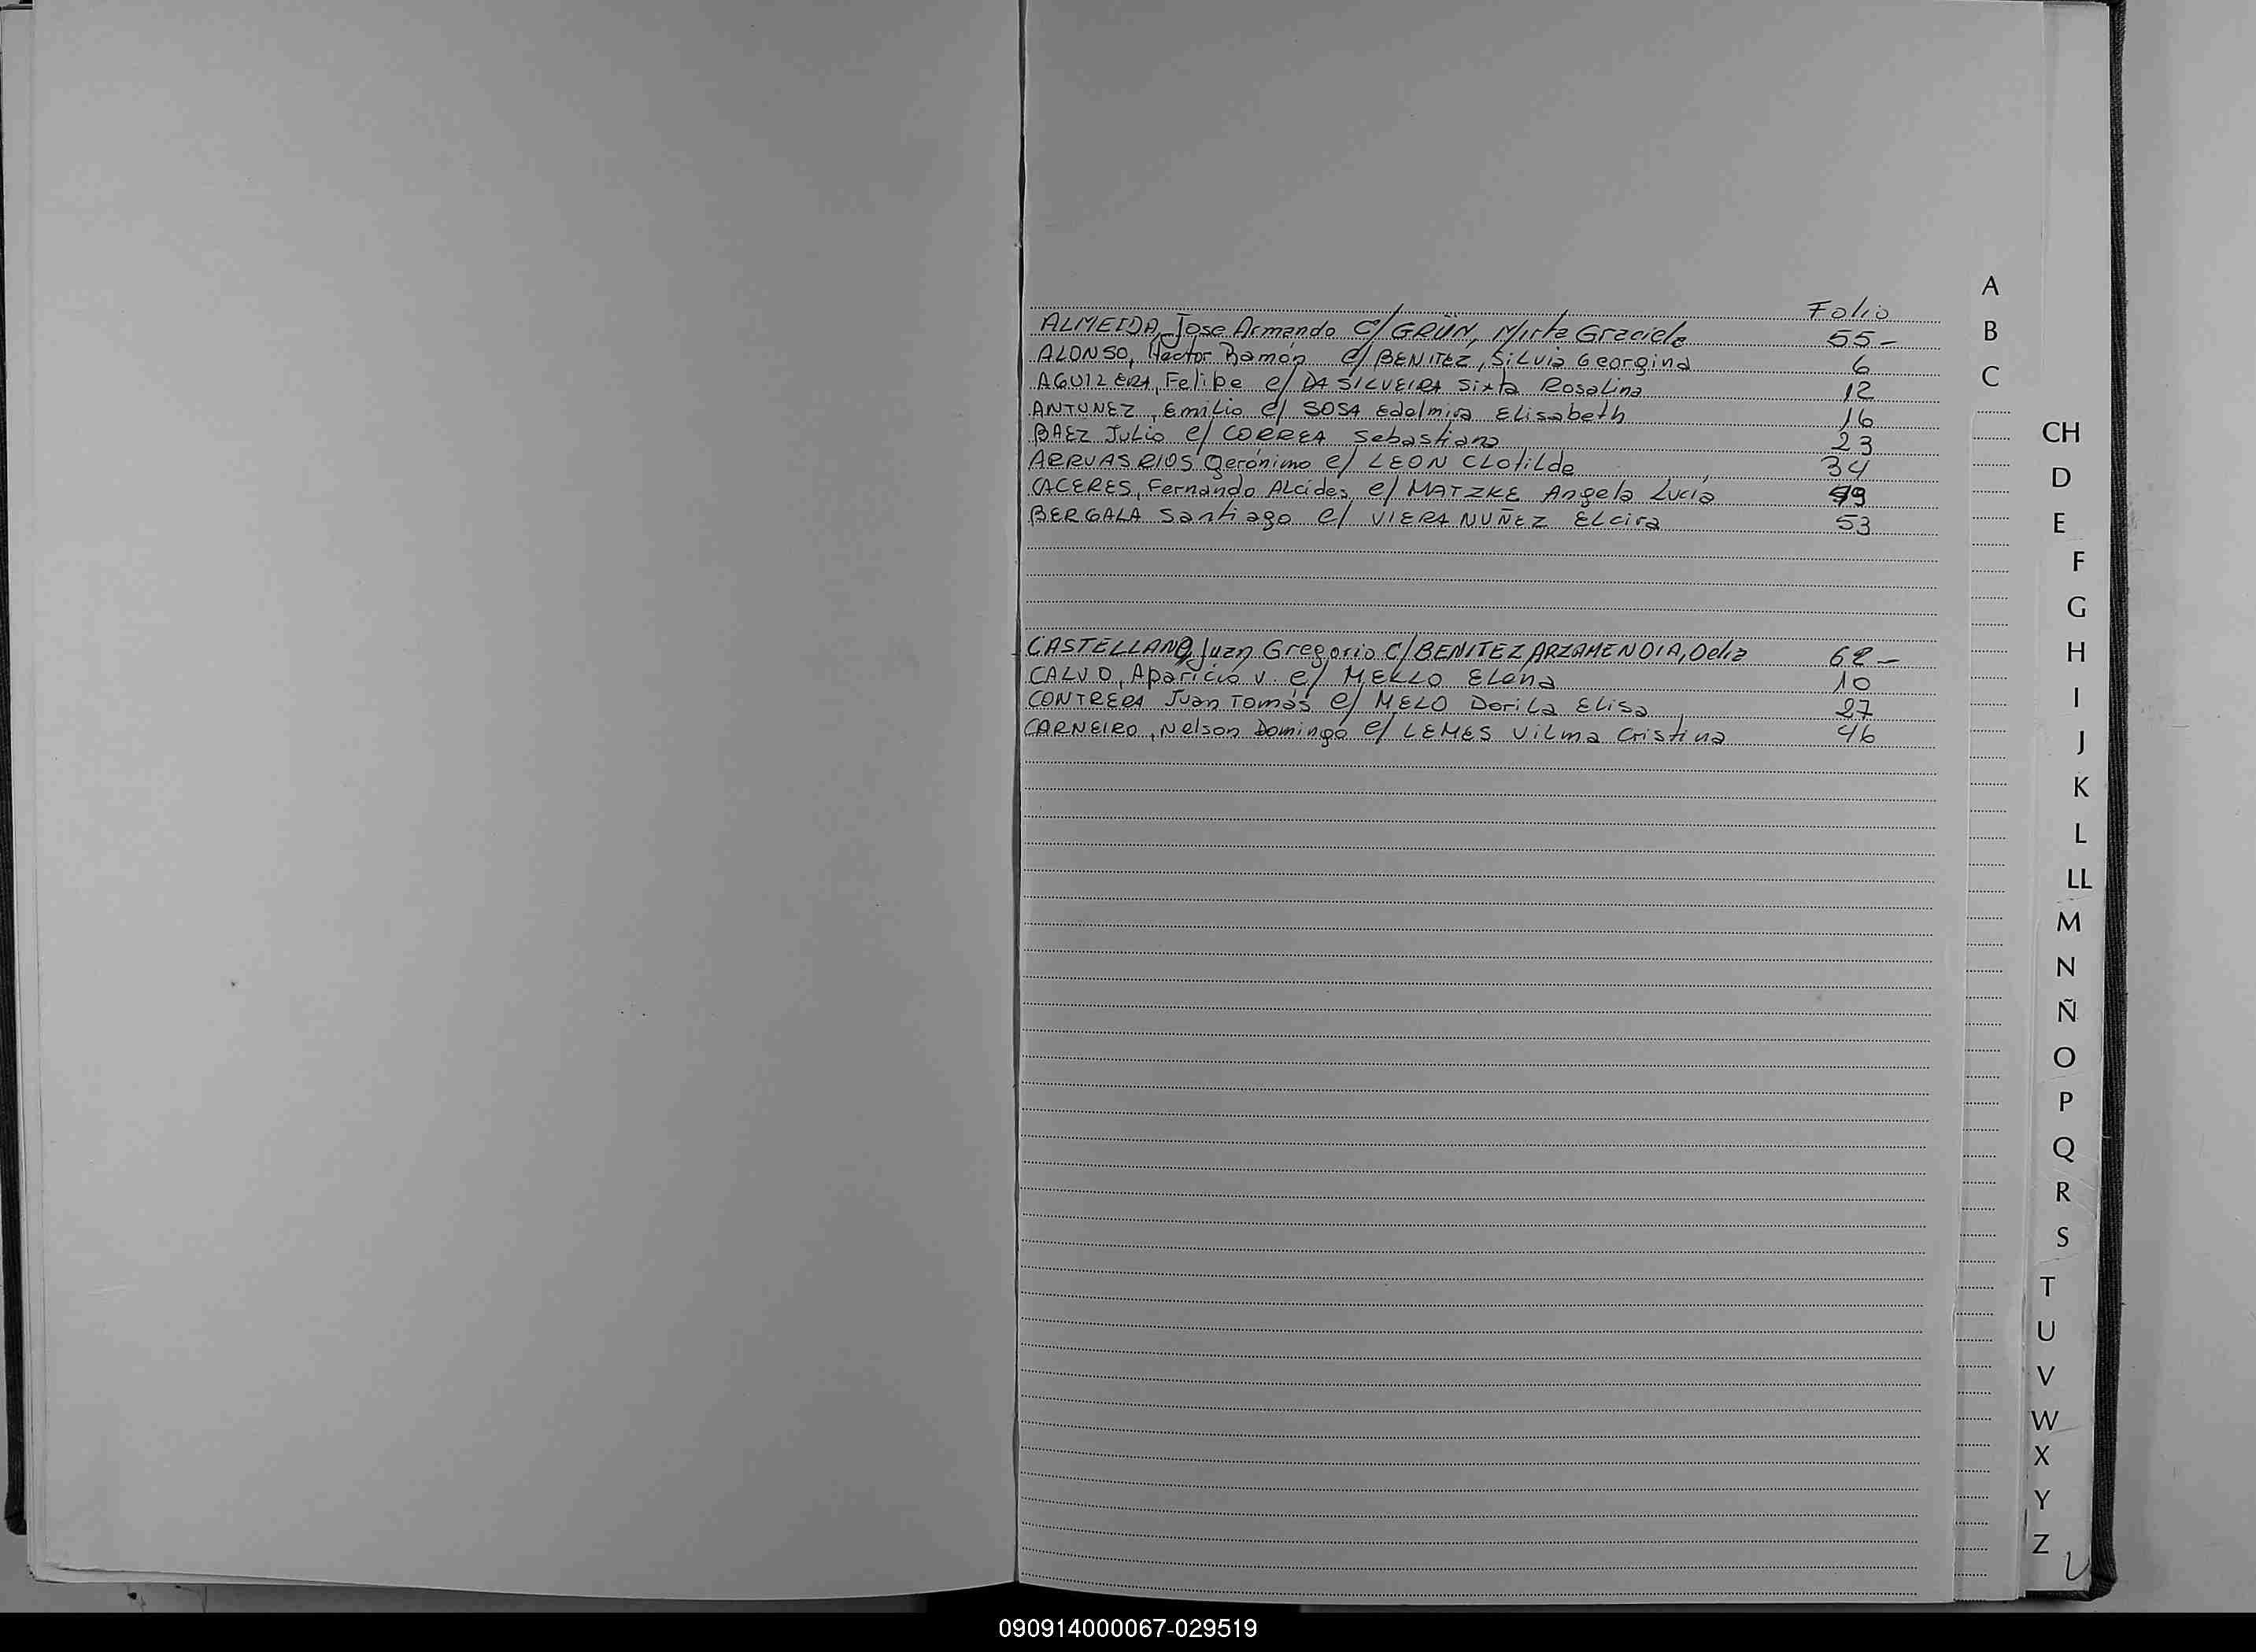 Folio
ALMEIDA, Jose Armando C/ GRÜN, Mirta Graciela 55-
ALONSO, Hector Ramón c/ BENITEZ, Silvia Georgina 6
AGUILERA, Felipe c/ DA SILVEIRA Sixta Rosalina 12
ANTUNEZ, Emilio c/ SOSA Edelmira Elisabeth 16
BAEZ Julio c/ CORREA Sebastiana 23
ARRUAS RIOS Gerónimo c/ LEON Clotilde 34
CACERES, Fernando Alcides c/ MATZKE Angela Lucia 49
BERGALA Santiago c/ VIERA NUÑEZ Elcira 53
CASTELLANO, Juan Gregorio C/ BENITEZ ARZAMENDIA, Delia 62-
CALVO, Aparicio V. c/ MELLO Elena 10
CONTRERA Juan Tomás c/ MELO Dorila Elisa 27
CARNEIRO, Nelson Domingo c/ LEMES Vilma Cristina 46
A
B
C
CH
D
E
F
G
H
I
J
K
L
LL
M
N
Ñ
O
P
Q
R
S
T
U
V
W
X
Y
Z
090914000067-029519